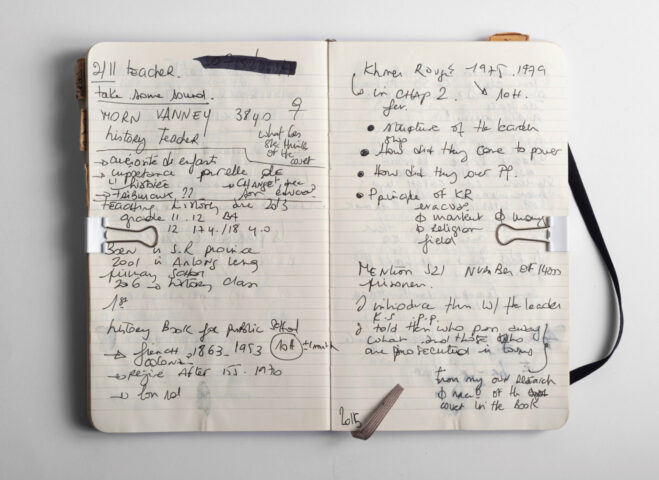 2/11 teacher.
take some sound.
HORN VANNEY 38 y.o ♀
history teacher
what does
she thinks
of the
court
→ curiosité de enfant
→ importance pour elle de
l'histoire
→ Tribunaux ??
→ CHANGE
teaching history since 2013
grade 11. 12
12 17 y. / 18 y.o
Born in S.R province
2001 in Anlong Veng
primary school
2006 → history class
1st
history Book for public school
→ french 1863-1953
colonial
10h
→ Régive After 1970
→ Lon nol
Khmer Rouge 1975.1979
↳ in CHAP 2. ↘ 10H.
• structure of the leader
ship
• How did they come to power
• How did they over PP.
• Principle of KR
evacuate
∅ market ∅ money
∅ religion
field
Mention S21 Number of 14000
prisoner.
I introduce them w/ the leader
K.S P.P.
I told them who
and those who
are prosecuted in
from my own research
∅ of the
court in the Book
2015